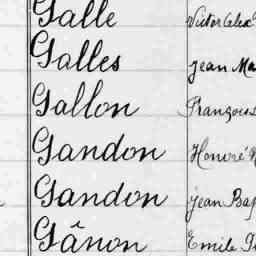 Galle Victor Alex
Galles Jean Ma
Gallon François
Gandon Honoré
Gandon Jean Bap
Gânon Emile